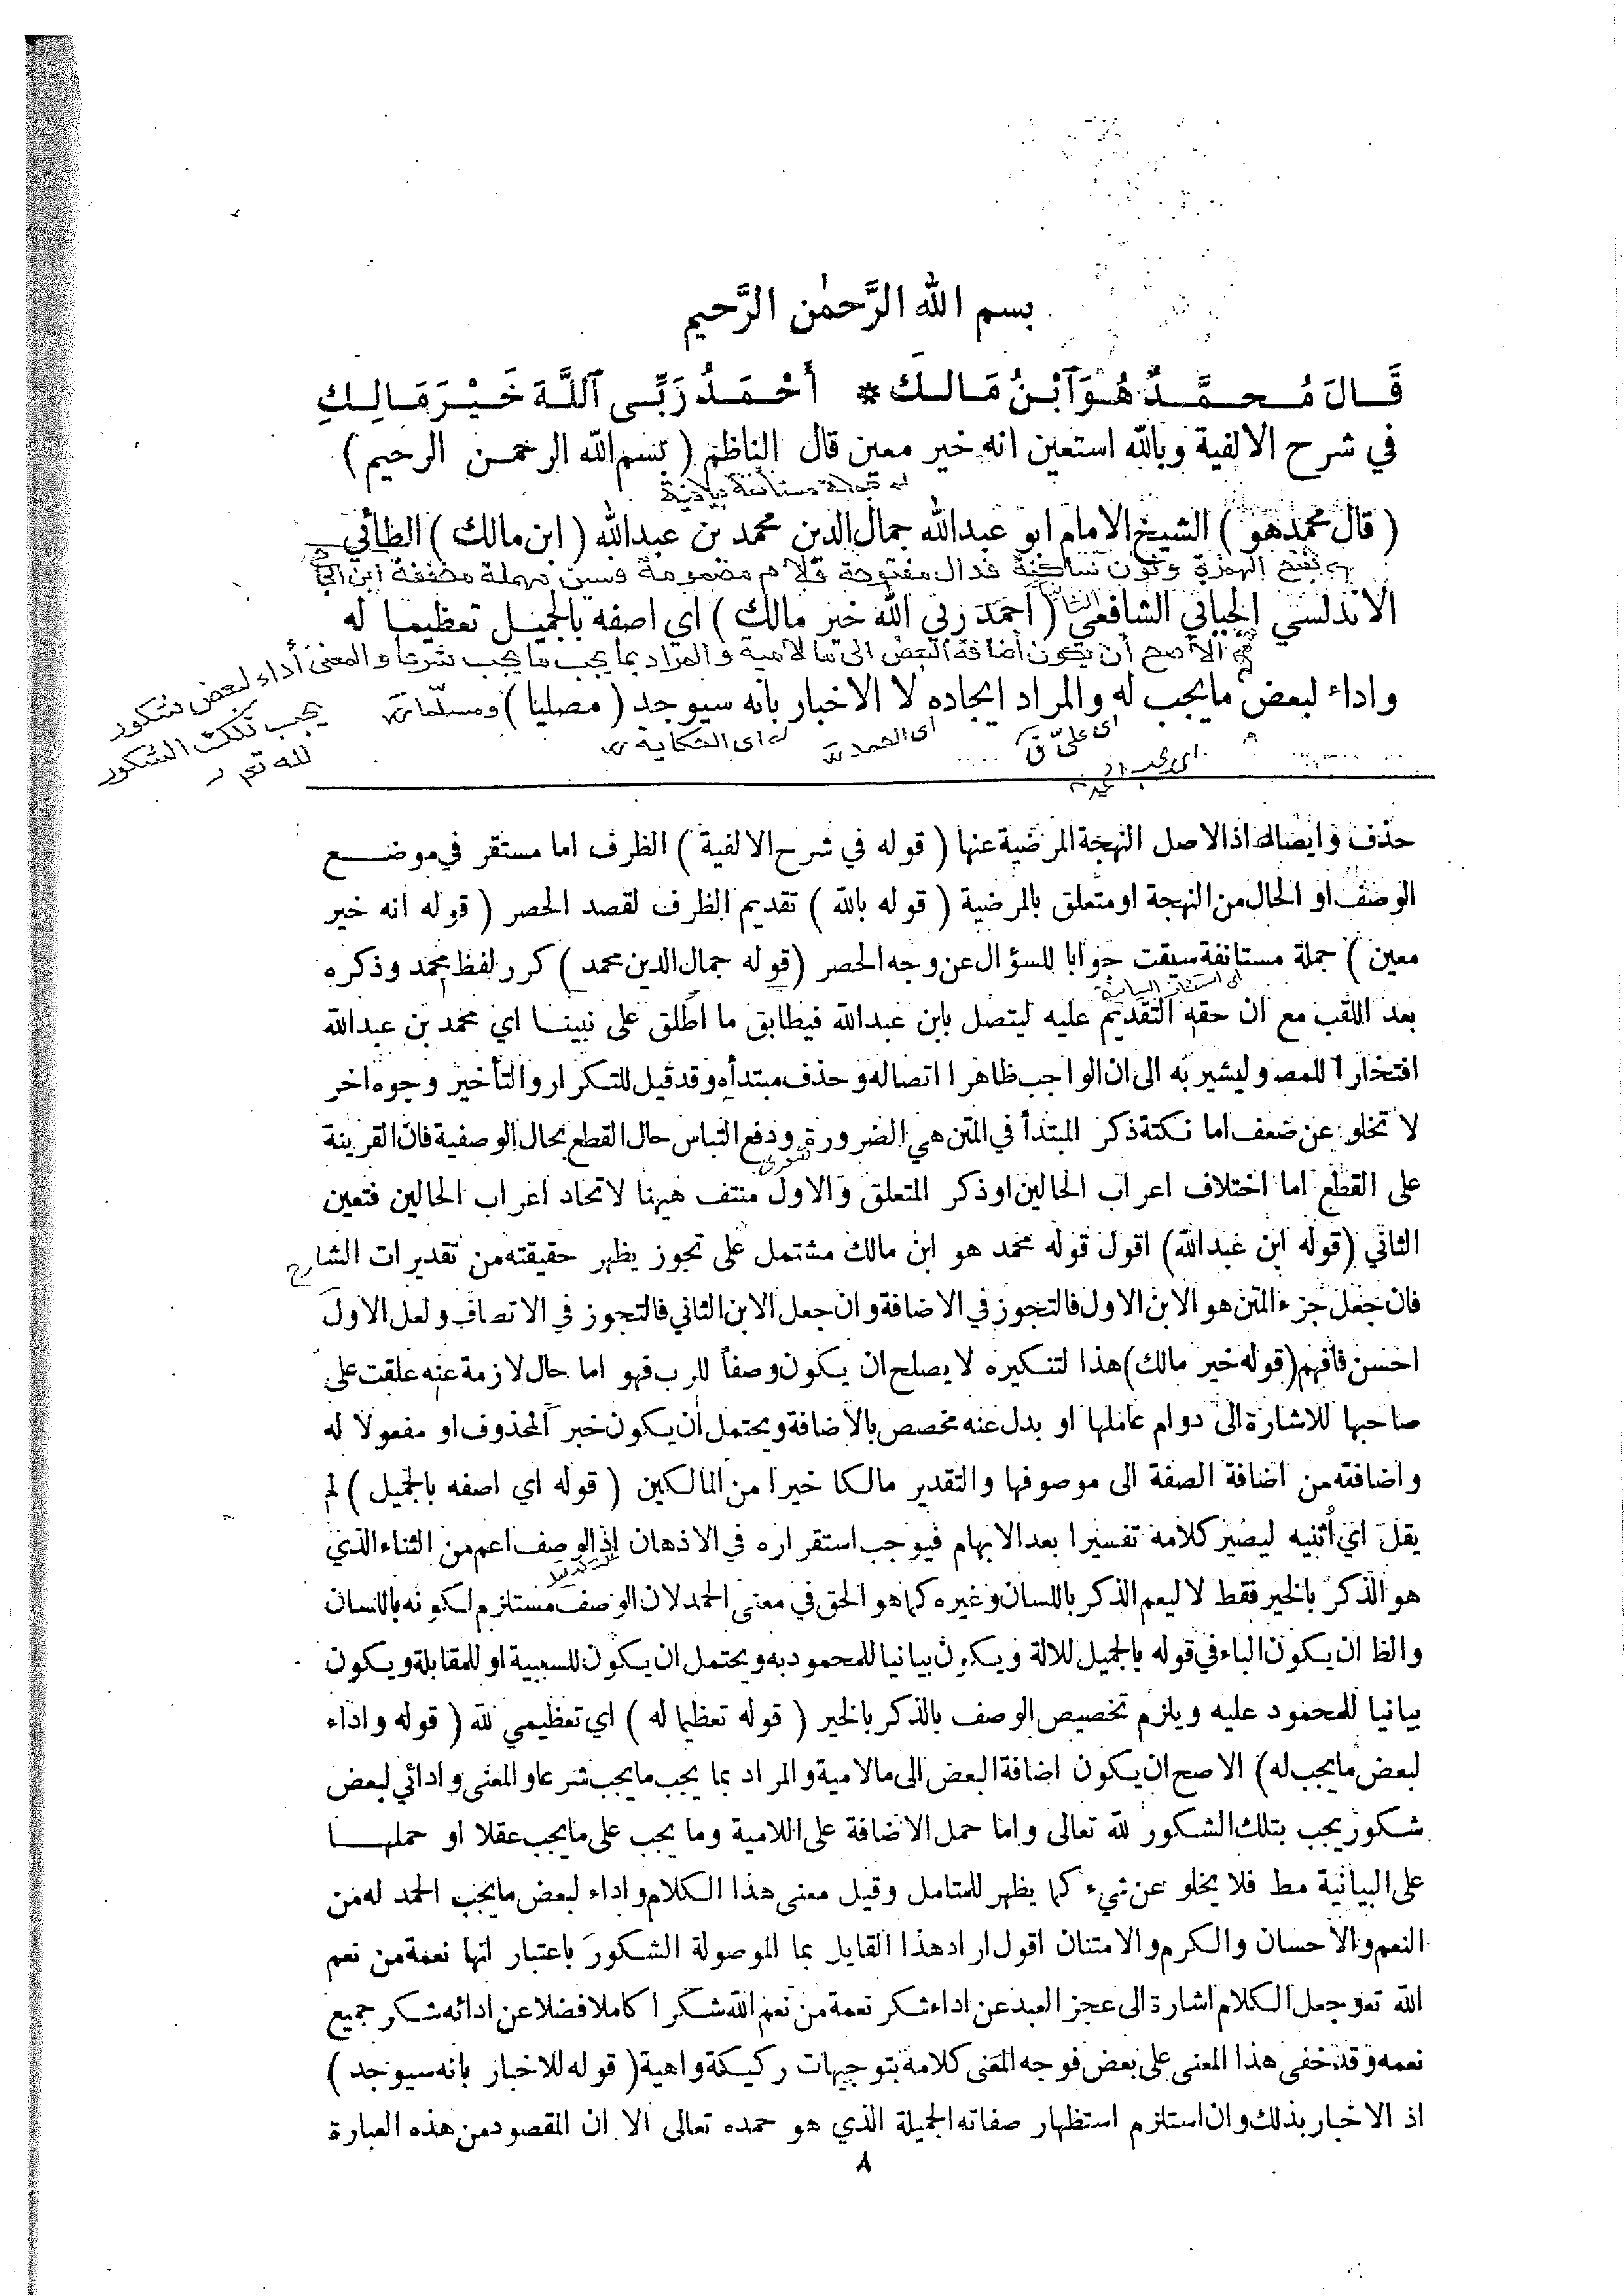 بسم الله الرَّحمٰن الرَّحيم
قَـالَ مُـحـمَّـدٌ هُـوَ ٱبْـنُ مَـالـكَ * أَحْـمَـدُ رَبِّـى ٱللَّـهَ خَـيْـرَ مَـالِـكِ
في شرح الالفية وبالله استعين انه خير معين قال الناظم ( بسم الله الرحمـن الرحيم )
اى جملة مستأنفة بيانية
( قال محمد هو ) الشيخ الامام ابو عبدالله جمال الدين محمد بن عبدالله ( ابن مالك ) الطائي
بفتح الهمزة ونون ساكنة فدال مفتوحة فلام مضمومة فسين مهملة مخففة
الاندلسي الجياني الشافعي ( احمد ربي الله خير مالك ) اي اصفه بالجميـل تعظيما له
الأصح أن يكون أضافة البعض الى ما لامية والمراد بما يجب ما يجب شرعا والمعنى أداء لبعض شكور
يجب بتلك الشكور
لله تع
واداء لبعض مايجب له والمراد ايجاده لا الاخبار بانه سيوجد ( مصليا ) ومسلّما
اى الحمد
اى الحكاية
حذف وايصاله اذ الاصل النهجة المرضية عنها ( قوله في شرح الالفية ) الظرف اما مستقر في موضـــع
الوصف او الحال من النهجة او متعلق بالمرضية ( قوله بالله ) تقديم الظرف لقصد الحصر ( قوله انه خير
معين ) جملة مستانفة سيقت جوابا للسؤال عن وجه الحصر (قوله جمال الدين محمد ) كرر لفظ محمد وذكره
بعد اللقب مع ان حقه التقديم عليه ليتصل بابن عبدالله فيطابق ما اطلق على نبينـا اي محمد بن عبدالله
افتخارا للمصـ وليشير به الى ان الواجب ظاهرا اتصاله وحذف مبتدأه وقد قيل للتكرار والتأخير وجوه اخر
لا تخلو عن ضعف اما نكتة ذكر المبتدأ في المتن هي الضرورة ودفع التباس حال القطع بحال الوصفية فان القرينة
على القطع اما اختلاف اعراب الحالين او ذكر المتعلق والاول منتف هيهنا لاتحاد اعراب الحالين فتعين
الثاني (قوله ابن عبدالله) اقول قوله محمد هو ابن مالك مشتمل على تجوز يظهر حقيقته من تقديرات الشارح
فان جعل جزء المتن هو الابن الاول فالتجوز في الاضافة وان جعل الابن الثاني فالتجوز في الاتصاف ولعل الاول
احسن فافهم (قوله خير مالك) هذا لتنكيره لا يصلح ان يكون وصفاً للرب فهو اما حال لازمة عنه علقت على
صاحبها للاشارة الى دوام عاملها او بدل عنه مخصص بالاضافة ويحتمل ان يكون خبر المحذوف او مفعولا له
واضافته من اضافة الصفة الى موصوفها والتقدير مالكا خيرا من المالكين ( قوله اي اصفه بالجميل ) لم
يقل اي أثنيه ليصير كلامه تفسيرا بعد الابهام فيوجب استقراره في الاذهان اذ الوصف اعم من الثناء الذي
هو الذكر بالخير فقط لا ليعم الذكر باللسان وغيره كما هو الحق في معنى الحمد لان الوصف مستلزم لكونه باللسان
والظا ان يكون الباء في قوله بالجميل للالة ويكون بيانيا للمحمود به ويحتمل ان يكون للسببية او للمقابلة ويكون
بيانيا للمحمود عليه ويلزم تخصيص الوصف بالذكر بالخير ( قوله تعظيما له ) اي تعظيمي لله ( قوله واداء
لبعض مايجب له) الاصح ان يكون اضافة البعض الى ما لامية والمراد بما يجب ما يجب شرعا والمعنى وادائي لبعض
شكور يجب بتلك الشكور لله تعالى واما حمل الاضافة على اللامية وما يجب على ما يجب عقلا او حملهـــا
على البيانية مط فلا يخلو عن شيء كما يظهر للمتامل وقيل معنى هذا الكلام واداء لبعض مايجب الحمد له من
النعم والاحسان والكرم والامتنان اقول اراد هذا القايل بما الموصولة الشكور باعتبار انها نعمة من نعم
الله تعو جعل الكلام اشارة الى عجز العبد عن اداء شكر نعمة من نعم الله شكرا كاملا فضلا عن ادائه شكر جميع
نعمه وقد خفى هذا المعنى على بعض فوجه المعنى كلامه بتوجيهات ركيكة واهية ( قوله للاخبار بانه سيوجد )
اذ الاخبار بذلك وان استلزم استظهار صفاته الجميلة الذي هو حمده تعالى الا ان المقصود من هذه العبارة
٨